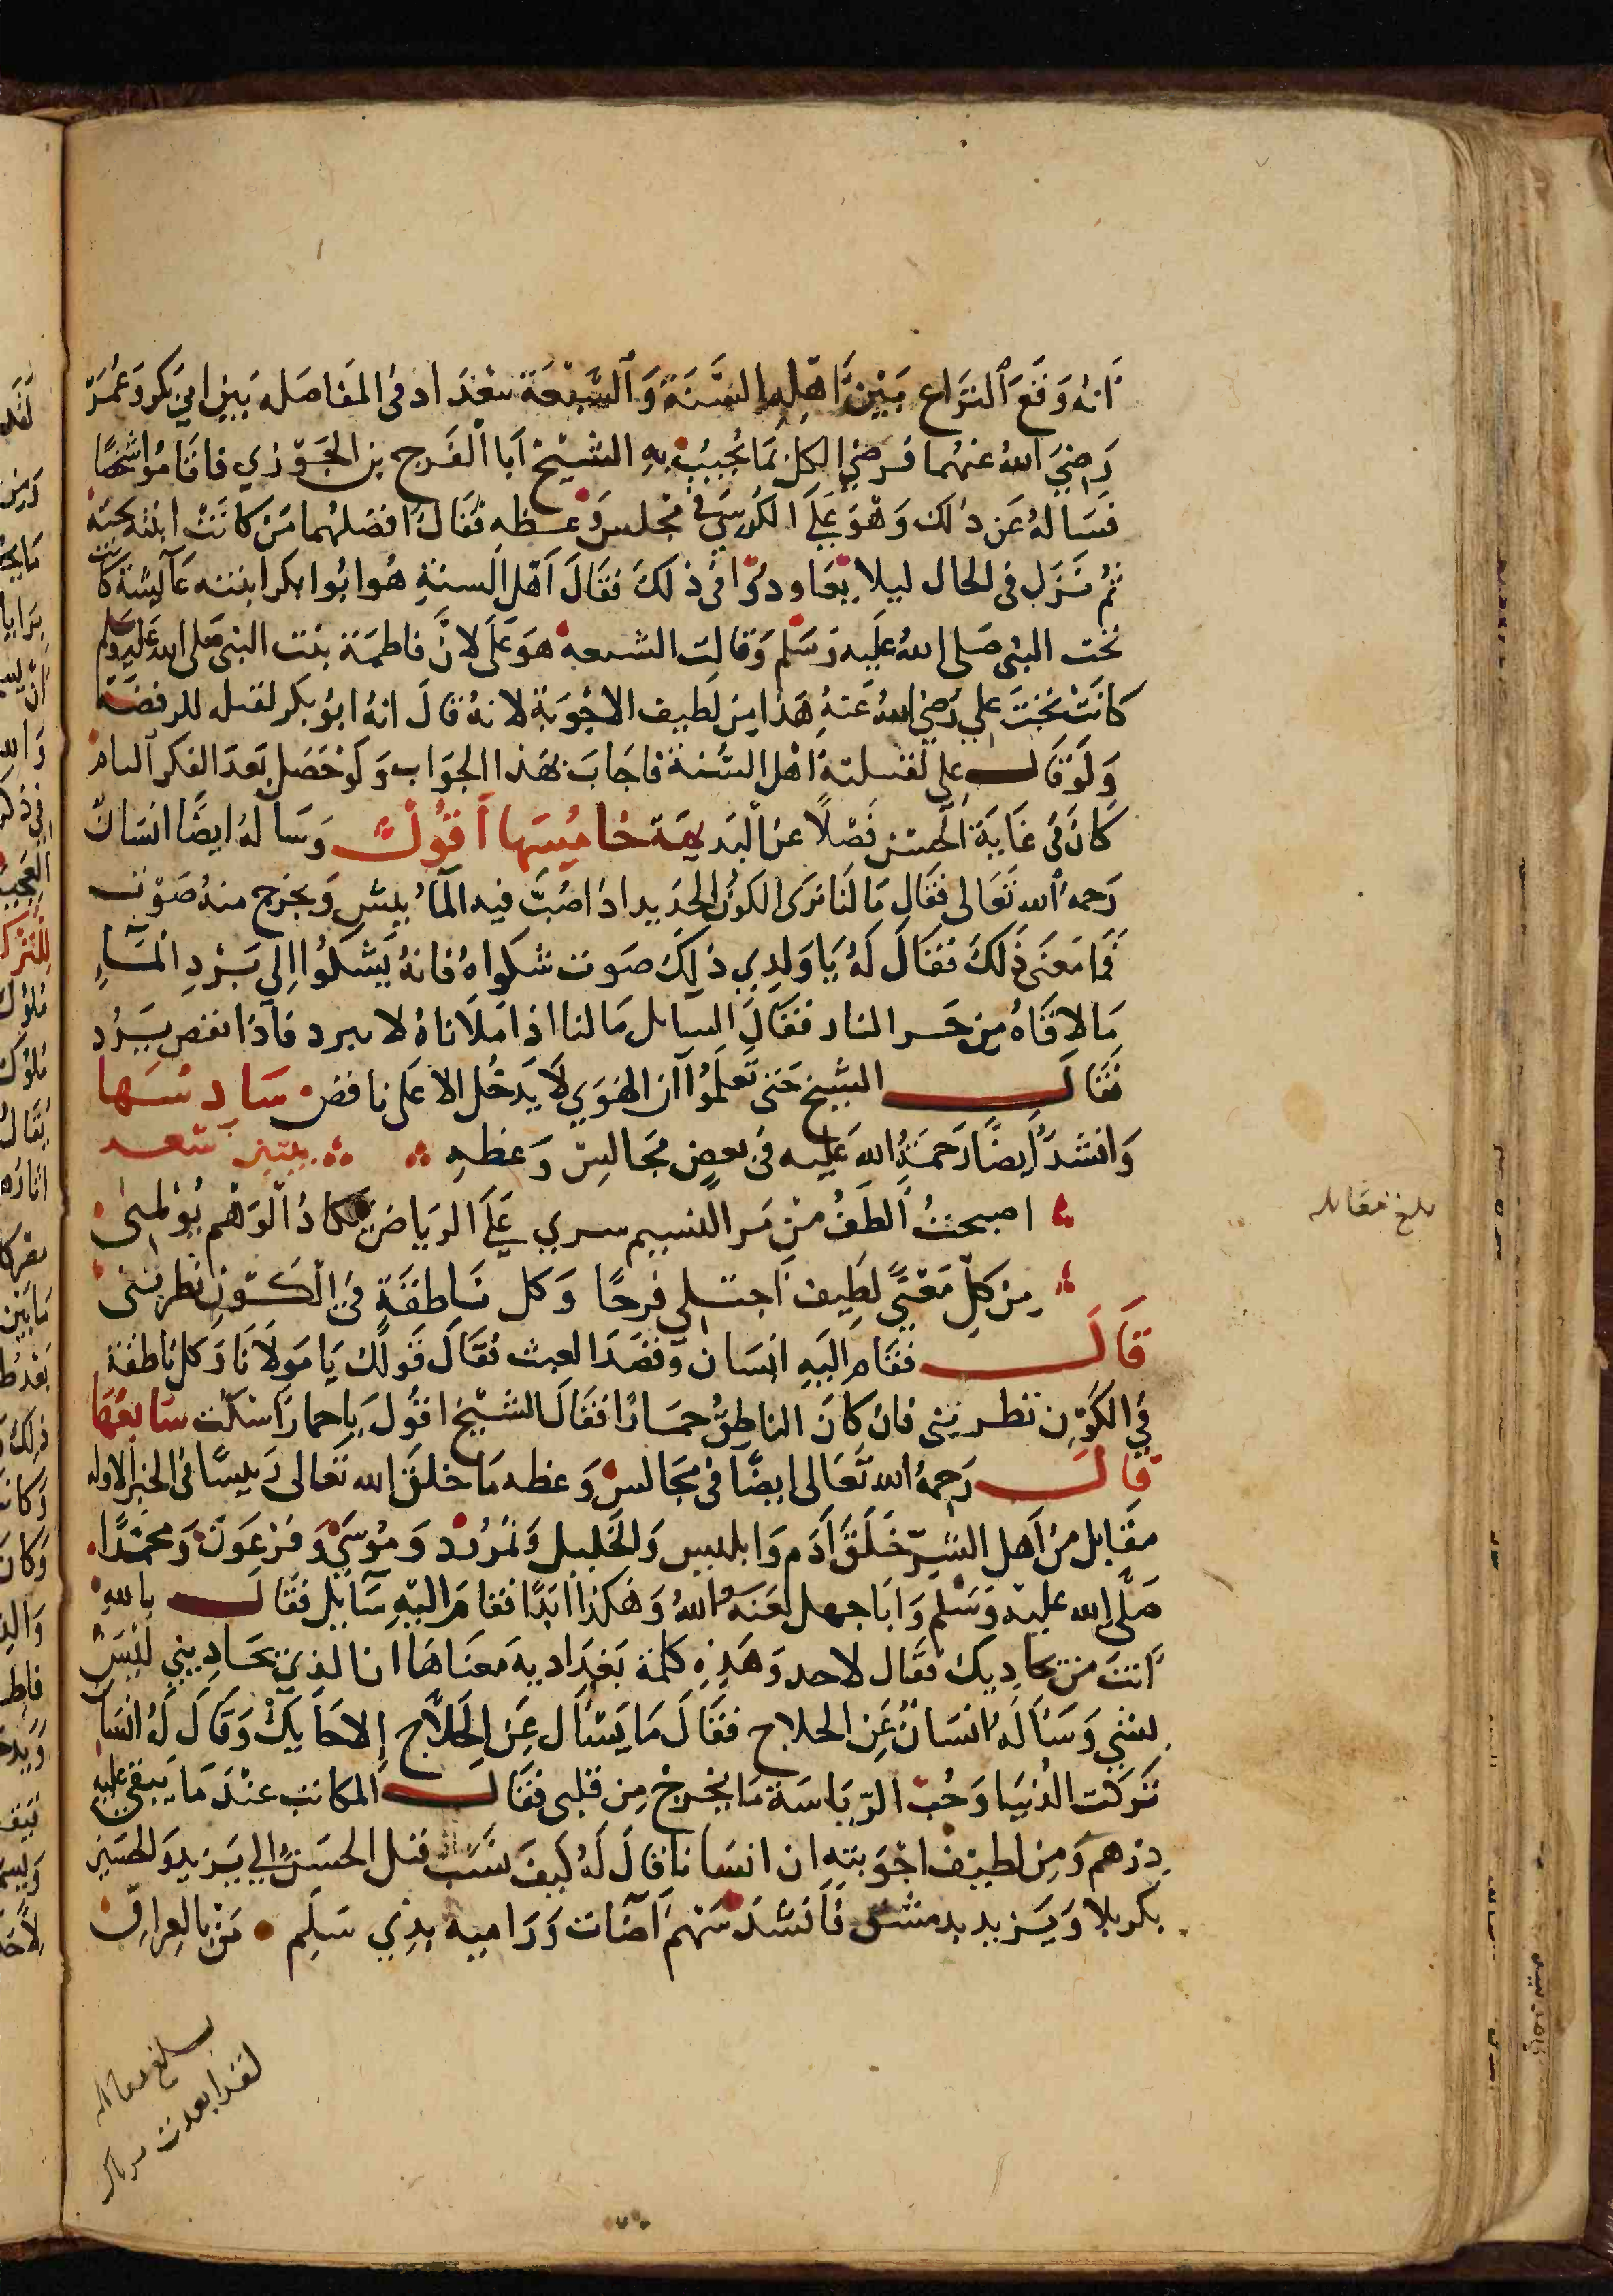 انه وَقَعَ النزَاع بَيْنَ اهْلِ السُّنَةَ وَالشِيْعَةَ ببَغْدَاد فى المفَاضله بَيْن ابى بَكر وَعُمَرَ
رَضِيَ اللهُ عَنهُما فرَضِيَ الكل بمَا يُجيبُ بهِ الشيْخ اَبا الفَرج بن الجَوْزي فاقامُوا شخصًا
فسَالهُ عَن ذلك وَهوَ عَلَى الكُرسِي فى مجلس وَعظه فقَالَ افضلهُما مَن كانَتْ ابنته تحته
ثم نَزَل فى الحال ليلا يعَاودُوا فى ذلكَ فقَالَ اهْل السنةِ هُو ابُوا بكر ابنته عَآيشة كانت
تحت النبى صَلى اللهُ عَليه وَسَلم وَقالت الشيعه هوَ عَلى لانَّ فاطمَة بنت النبى صلى الله عَليه وسلم
كانَتْ تحْتَ علي رَضِيَ اللهُ عَنهُ هَذا مِن لَطيف الاجْوبَة لانهُ قالَ انهُ ابُو بكر لقتله للرفضَة
وَلَوْ قالَ على لقتلتهُ اهْل السُنة فاجَابَ بهَذا الجوَاب وَلَوْ حَصَل بَعدَ الفكر التام
كانَ فى غايَة الحسْن فضْلًا عن البَديهَة خامِيسَها اَقُوْلُ وَسَالهُ ايضًا انسَانٌ
رَحمهُ الله تعَالى فقَال مَا لَنا نرَى الكوز الجديد اذا صُبَّ فيه المآءُ ينش وَيخرج منهُ صَوْت
فما مَعنَى ذَلكَ فقَالَ لَهُ يَا وَلدِي ذَلِكَ صَوت شكوَاهُ فانهُ يَشكُوا اِلى بَرْدِ المَآءِ
مَا لاقاهُ مِن حَر النار فقَالَ السايل مَا لنا اذا مَلأناهُ لا يبرد فاذا نقص يَبرُد
فقَالَ الشيخ حَتى تعلَمُوا ان الهَوي لَا يَدخُل الا عَلى ناقص سَادِسَها
وَانشدَ ايضًا رَحمَةُ الله عَليه فى بعض مَجالِس وَعظهِ بيتين شعر
اصبحتُ اَلطفُ منْ مَر النسيم سري عَلَى الريَاض يكادُ الوَهْم يُؤلمنى
مِن كلِّ مَعْنًى لَطِيف اَجتلى فرحًا وَكل نَاطقَةٍ فى الكَوْنِ تطربنى
قَالَ فقَام اليَهِ انسَان وَقصَدَ العبث فقَالَ قَولكَ يَا مَولَانَا وَكل ناطقة
فى الكَوْن تطربنى فان كانَ الناطقُ حمَارًا فقَالَ الشيْخ اقُولَ يا حمارَ اسْكُت سَابعُهَا
قالَ رَحمهُ الله تعَالى ايضًا فى مَجَالسْ وَعظه مَا خلقَ الله تعَالى رَييسًا فى الخير الا وله
مقَابل من اَهل الشرّ خَلَقَ اَدَم وَابليس وَالخليل وَنمرُود وَمُوسَى وَفرْعَونَ وَمحمَّدًا
صَلَّى الله عليه وَسَلَّم وَابَا جهل لعَنهُ اللهُ وَهَكذا ابَدًا فقام اليْهِ سَآيل فقَالَ بالله
اَنتَ مَن يحَاديك فقَال لاحد وَهَذِه كلمة بَغدَاديه مَعنَاهَا انا الذي يحَاديني لَيْسَ
بشئ وَسَأله انسَانٌ عَن الحلاج فقَالَ مَا يَسْأل عَن الحَلَّاج الا حَايكْ وَقَالَ لَهُ انسَان
تَركتُ الدُنيَا وَحُب الرّيَاسَة مَا يخرجْ مِن قلبى فقَال المكاتب عندَ مَا يبقى عليه
دِرْهم وَمِن لطيف اجْوبَتهِ ان انسَانا قالَ لَهُ كيفَ نسَب قتل الحسَين الي يَزيد وَالحسَين
بكربلا وَيَزيد بدمشق فَانشدَ سَهْمٌ اَصَابَ وَرَاميه بذي سَلَمٍ مَنْ بالعِرَاقِ
بلغ مقابله
بلغ مقابله
لقد ابعدت مرماك